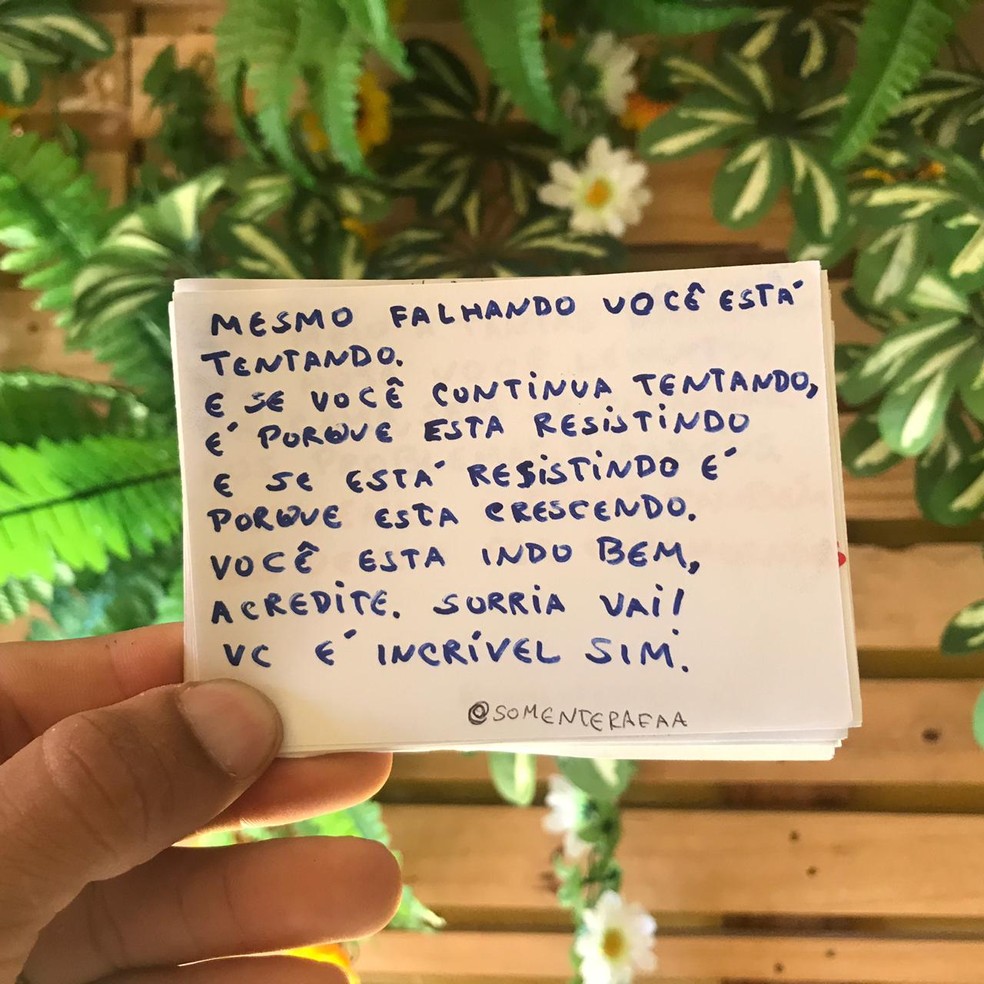 MESMO FALHANDO VOCÊ ESTÁ
TENTANDO.
E SE VOCÊ CONTINUA TENTANDO,
É PORQUE ESTA RESISTINDO
E SE ESTÁ RESISTINDO É
PORQUE ESTA CRESCENDO.
VOCÊ ESTA INDO BEM,
ACREDITE. SORRIA VAI!
VC É INCRÍVEL SIM.
@SOMENTERAFAA